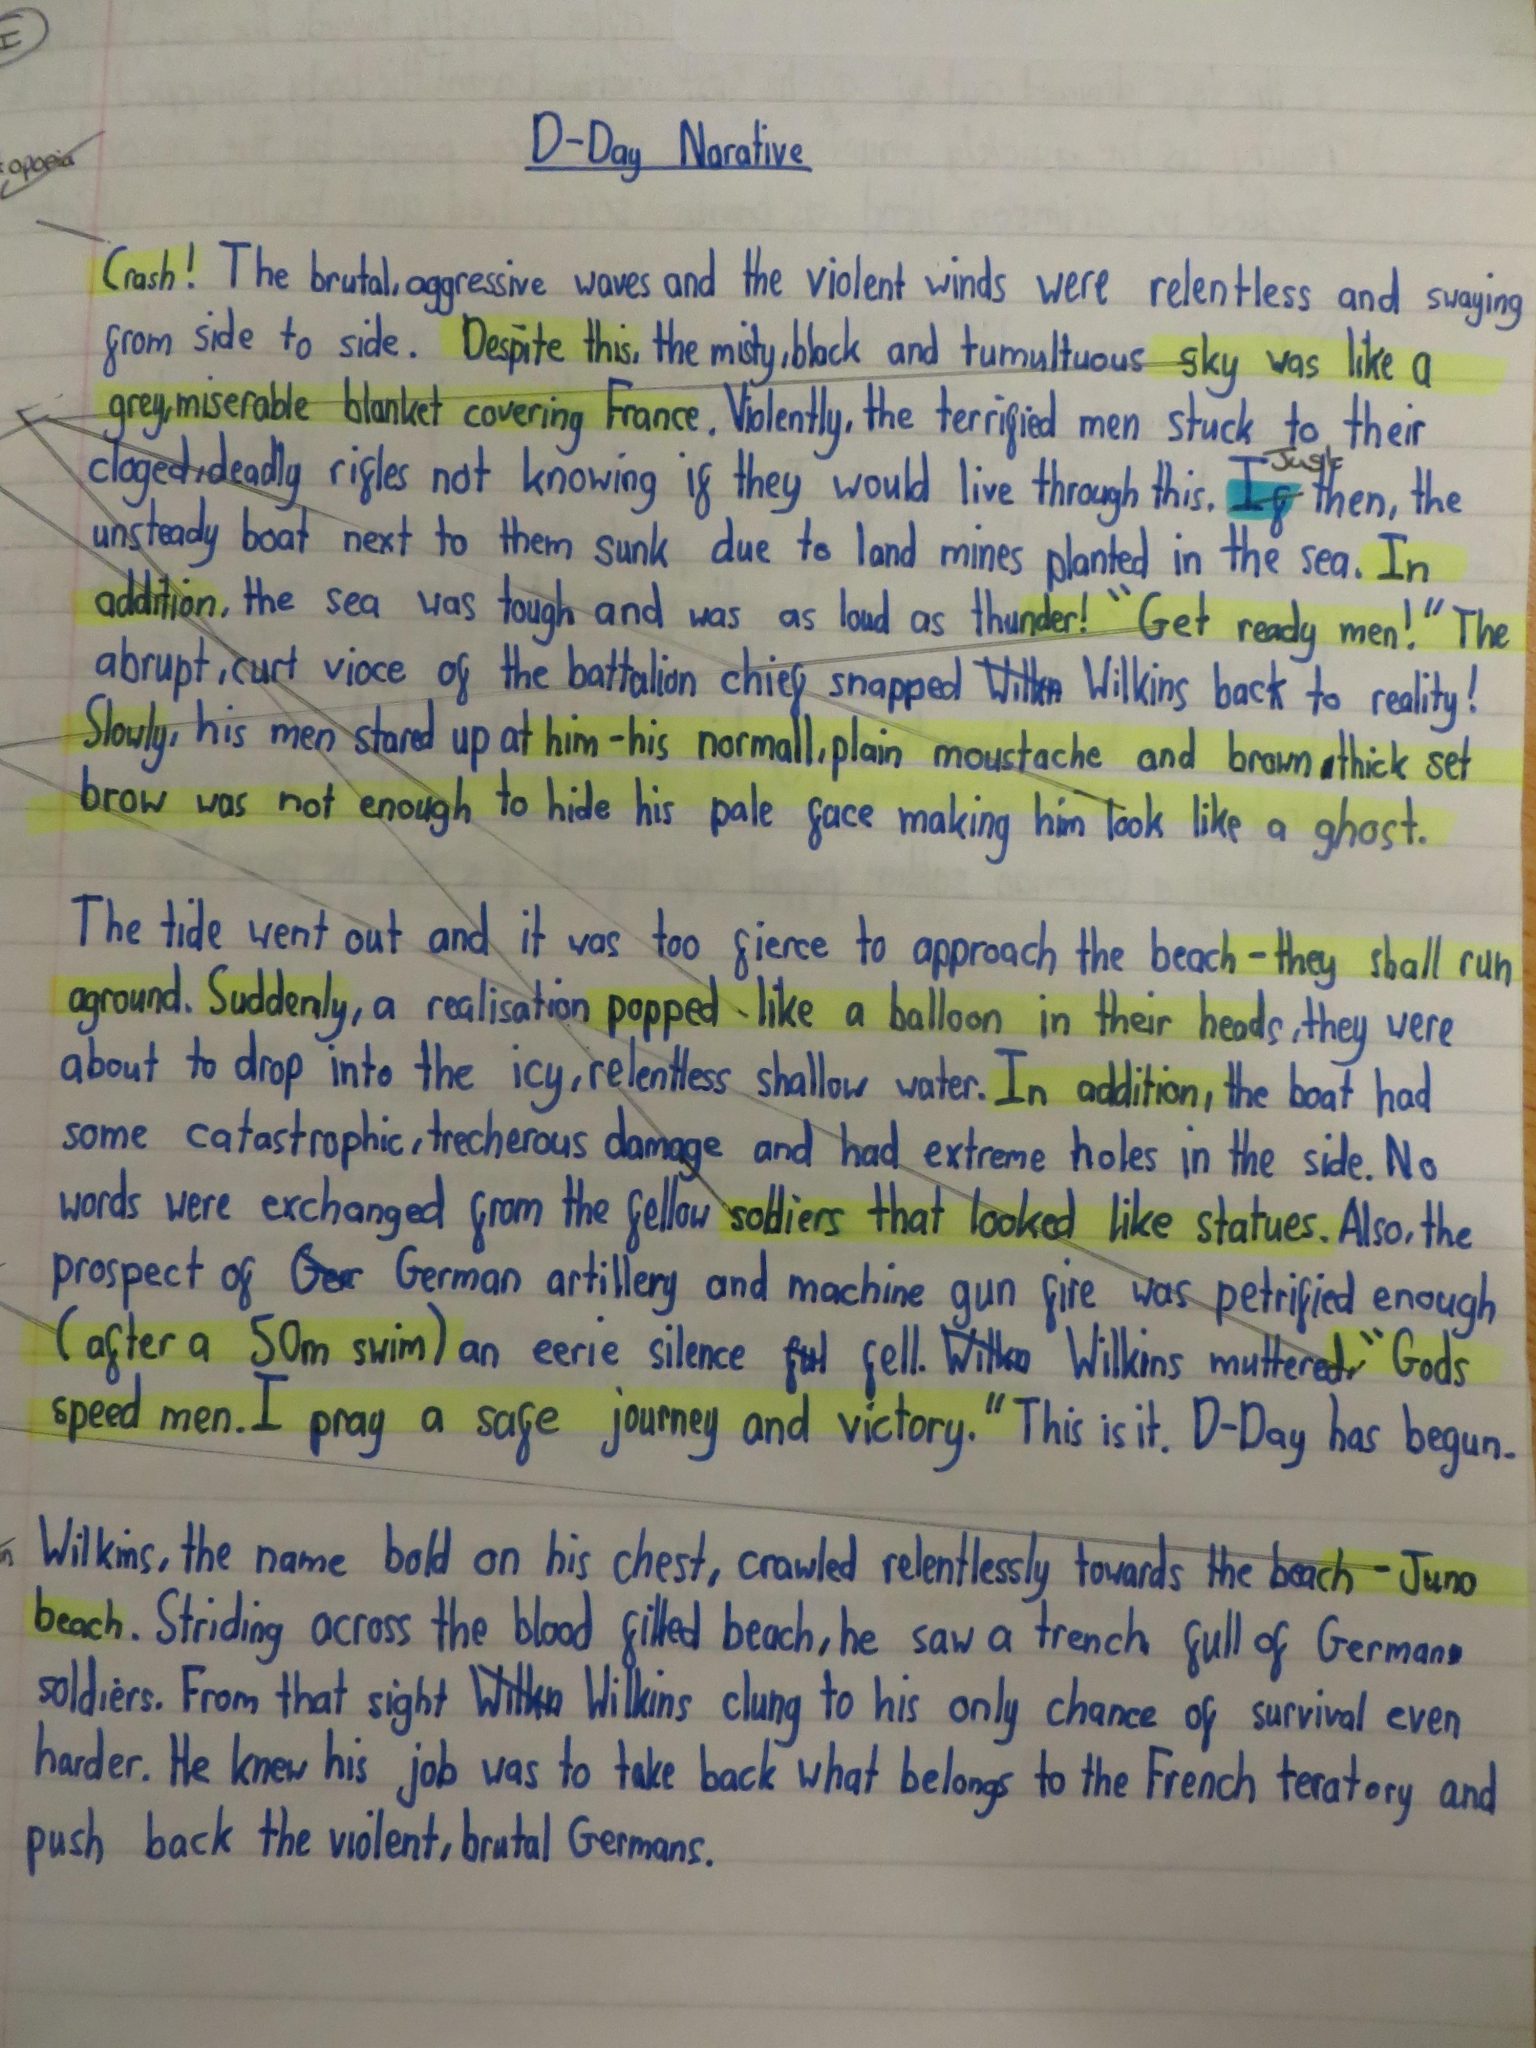 D-Day Norative
Crash! The brutal, aggressive waves and the violent winds were relentless and swaying
from side to side. Despite this, the misty, black and tumultuous sky was like a
grey, miserable blanket covering France. Violently, the terrified men stuck to their
Just
cloged, deadly rifles not knowing if they would live through this. If then, the
unsteady boat next to them sunk due to land mines planted in the sea. In
addition, the sea was tough and was as loud as thunder! "Get ready men!" The
abrupt, curt vioce of the battalion chief snapped Wilkins back to reality!
Slowly, his men stared up at him - his normall, plain moustache and brown, thick set
brow was not enough to hide his pale face making him look like a ghost.
The tide went out and it was too fierce to approach the beach - they shall run
aground. Suddenly, a realisation popped like a balloon in their heads, they were
about to drop into the icy, relentless shallow water. In addition, the boat had
some catastrophic, trecherous damage and had extreme holes in the side. No
words were exchanged from the fellow soldiers that looked like statues. Also, the
prospect of German artillery and machine gun fire was petrified enough
(after a 50m swim) an eerie silence fell. Wilkins muttered, "Gods
speed men. I pray a safe journey and victory." This is it. D-Day has begun.
Wilkins, the name bold on his chest, crawled relentlessly towards the beach - Juno
beach. Striding across the blood filled beach, he saw a trench full of German
soldiers. From that sight Wilkins clung to his only chance of survival even
harder. He knew his job was to take back what belongs to the French teratory and
push back the violent, brutal Germans.